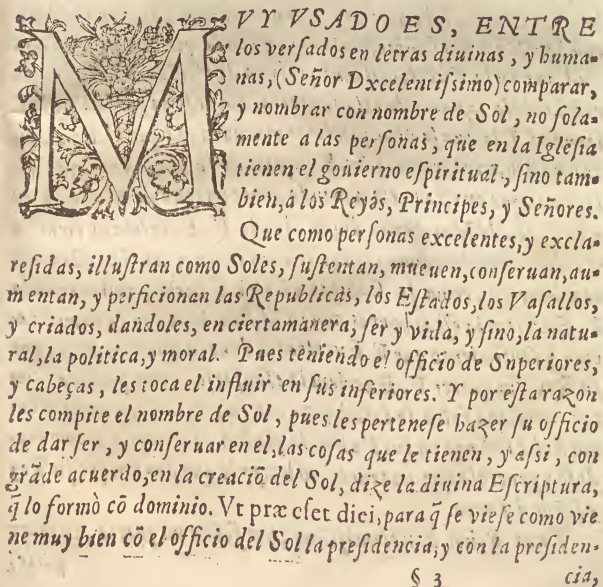 MVY VSADO ES, ENTRE
los verſados en letras diuinas, y huma-
nas, (Señor Dxcelentiſsimo) comparar,
y nombrar con nombre de Sol, no ſola-
mente a las perſonas, que en la Igleſia
tienen el gouierno eſpiritual, ſino tam-
bien, à los Reyes, Principes, y Señores.
Que como perſonas excelentes, y excla-
reſidas, illuſtran como Soles, ſuſtentan, mueuen, conſeruan, au-
mentan, y perficionan las Republicas, los Eſtados, los Vaſallos,
y criados, dandoles, en ciertamanera, ſer y vida, y ſino, la natu-
ral, la politica, y moral. Pues teniendo el officio de Superiores,
y cabeças, les toca el influir en ſus inferiores. Y por eſta razon
les compite el nombre de Sol, pues les perteneſe hazer ſu officio
de dar ſer, y conſeruar en el, las coſas que le tienen, y aſsi, con
grãde acuerdo, en la creaciõ del Sol, dize la diuina Eſcriptura,
q̃ lo formò cõ dominio. Vt præ eſet diei, para q̃ ſe vieſe como vie
ne muy bien cõ el officio del Sol la preſidencia, y con la preſiden-
§ 3 cia,